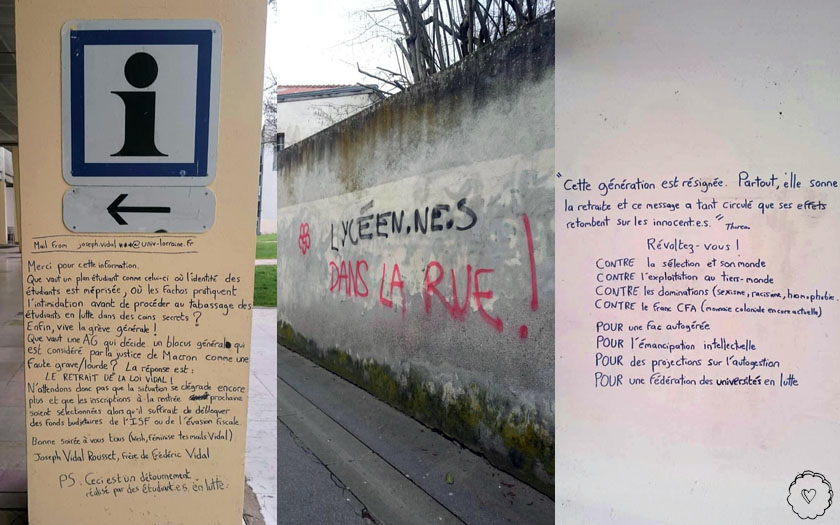 i
Mail from joseph.vidal***@univ-lorraine.fr
Merci pour cette information.
Que vaut un plan étudiant comme celui-ci où l'identité des
étudiants est méprisée, où les fachos pratiquent
l'intimidation avant de procéder au tabassage des
étudiants en lutte dans des coins secrets ?
Enfin, vive la grève générale !
Que vaut une AG qui décide un blocus général qui
est considéré par la justice de Macron comme une
faute grave/lourde ? La réponse est :
LE RETRAIT DE LA LOI VIDAL !
N'attendons donc pas que la situation se dégrade encore
plus et que les inscriptions à la rentrée prochaine
soient sélectionnées alors qu'il suffirait de débloquer
des fonds budgétaires de l'ISF ou de l'évasion fiscale.
Bonne soirée à vous tous (Wesh, féminise tes mails Vidal)
Joseph Vidal Rousset, frère de Frédéric Vidal
PS. Ceci est un détournement
réalisé par des étudiant.e.s en lutte.
LYCÉEN.NE.S
DANS LA RUE !
"Cette génération est résignée. Partout, elle sonne
la retraite et ce message a tant circulé que ses effrets
retombent sur les innocent.e.s."
Révoltez-vous !
CONTRE la sélection et son monde
CONTRE l'exploitation au tiers-monde
CONTRE les dominations (sexisme, racisme, homophobie.
CONTRE le franc CFA (monnaie coloniale encore actuelle)
POUR une fac autogérée
POUR l'émancipation intellectuelle
POUR des projections sur l'autogestion
POUR une fédération des universités en lutte